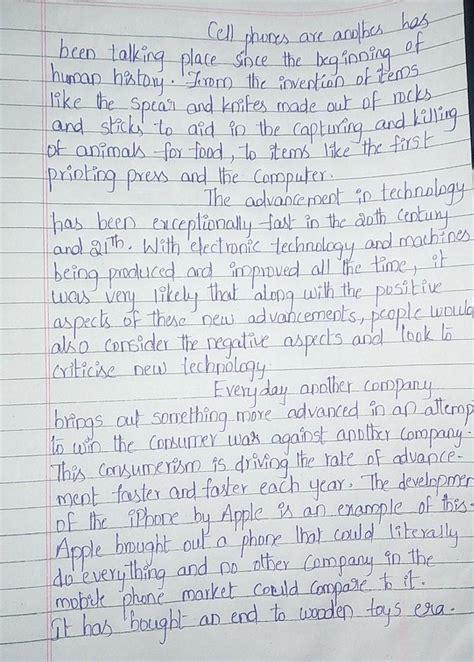 Cell phones are another has
been talking place since the beginning of
human history. From the invention of items
like the spear and knifes made out of rocks
and sticks to aid in the capturing and killing
of animals for food, to items like the first
printing press and the computer.
The advancement in technology
has been exceptionally fast in the 20th century
and 21th. With electronic technology and machines
being produced and improved all the time, it
was very likely that along with the positive
aspects of these new advancements, people would
also consider the negative aspects and look to
criticise new technology.
Everyday another company
brings out something more advanced in an attemp
to win the consumer war against another company.
This consumerism is driving the rate of advance-
ment faster and faster each year. The developmen
of the iPhone by Apple is an example of this.
Apple brought out a phone that could literally
do everything and no other company in the
mobile phone market could compare to it.
It has bought an end to wooden toys era.